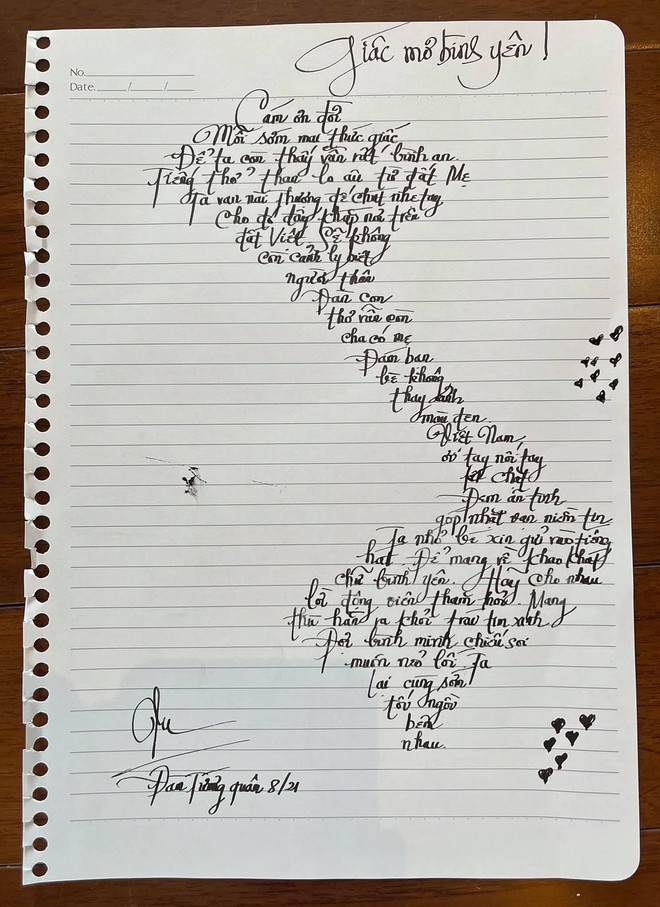 Giấc mơ bình yên!
No.
Date. / /
Cám ơn đời
Mỗi sớm mai thức giấc
Để ta còn thấy vẫn rất bình an.
Tiếng thở than lo âu từ đất Mẹ
Ta van nài thương đế chút nhẹ tay
Cho đó đây khắp nơi trên
đất Việt Sẽ không
còn cảnh ly biệt
người thân
Đàn con
thơ vẫn còn
cha có mẹ
Đám bạn
bè không
thay ảnh
màu đen.
Việt Nam,
ơi tay nối tay
thật chặt
Đem ân tình
góp nhặt vạn niềm tin
Ta nhỏ bé xin gửi vào tiếng
hát. Để mang về khao khát
chữ bình yên. Hãy cho nhau
lời động viên thăm hỏi. Mang
thù hận ra khỏi trái tim xanh
Đợi bình minh chiếu soi
muôn nơi lối. Ta
lại cùng sớm
tối ngồi
bên
nhau.
Đan Trường quân 8/21